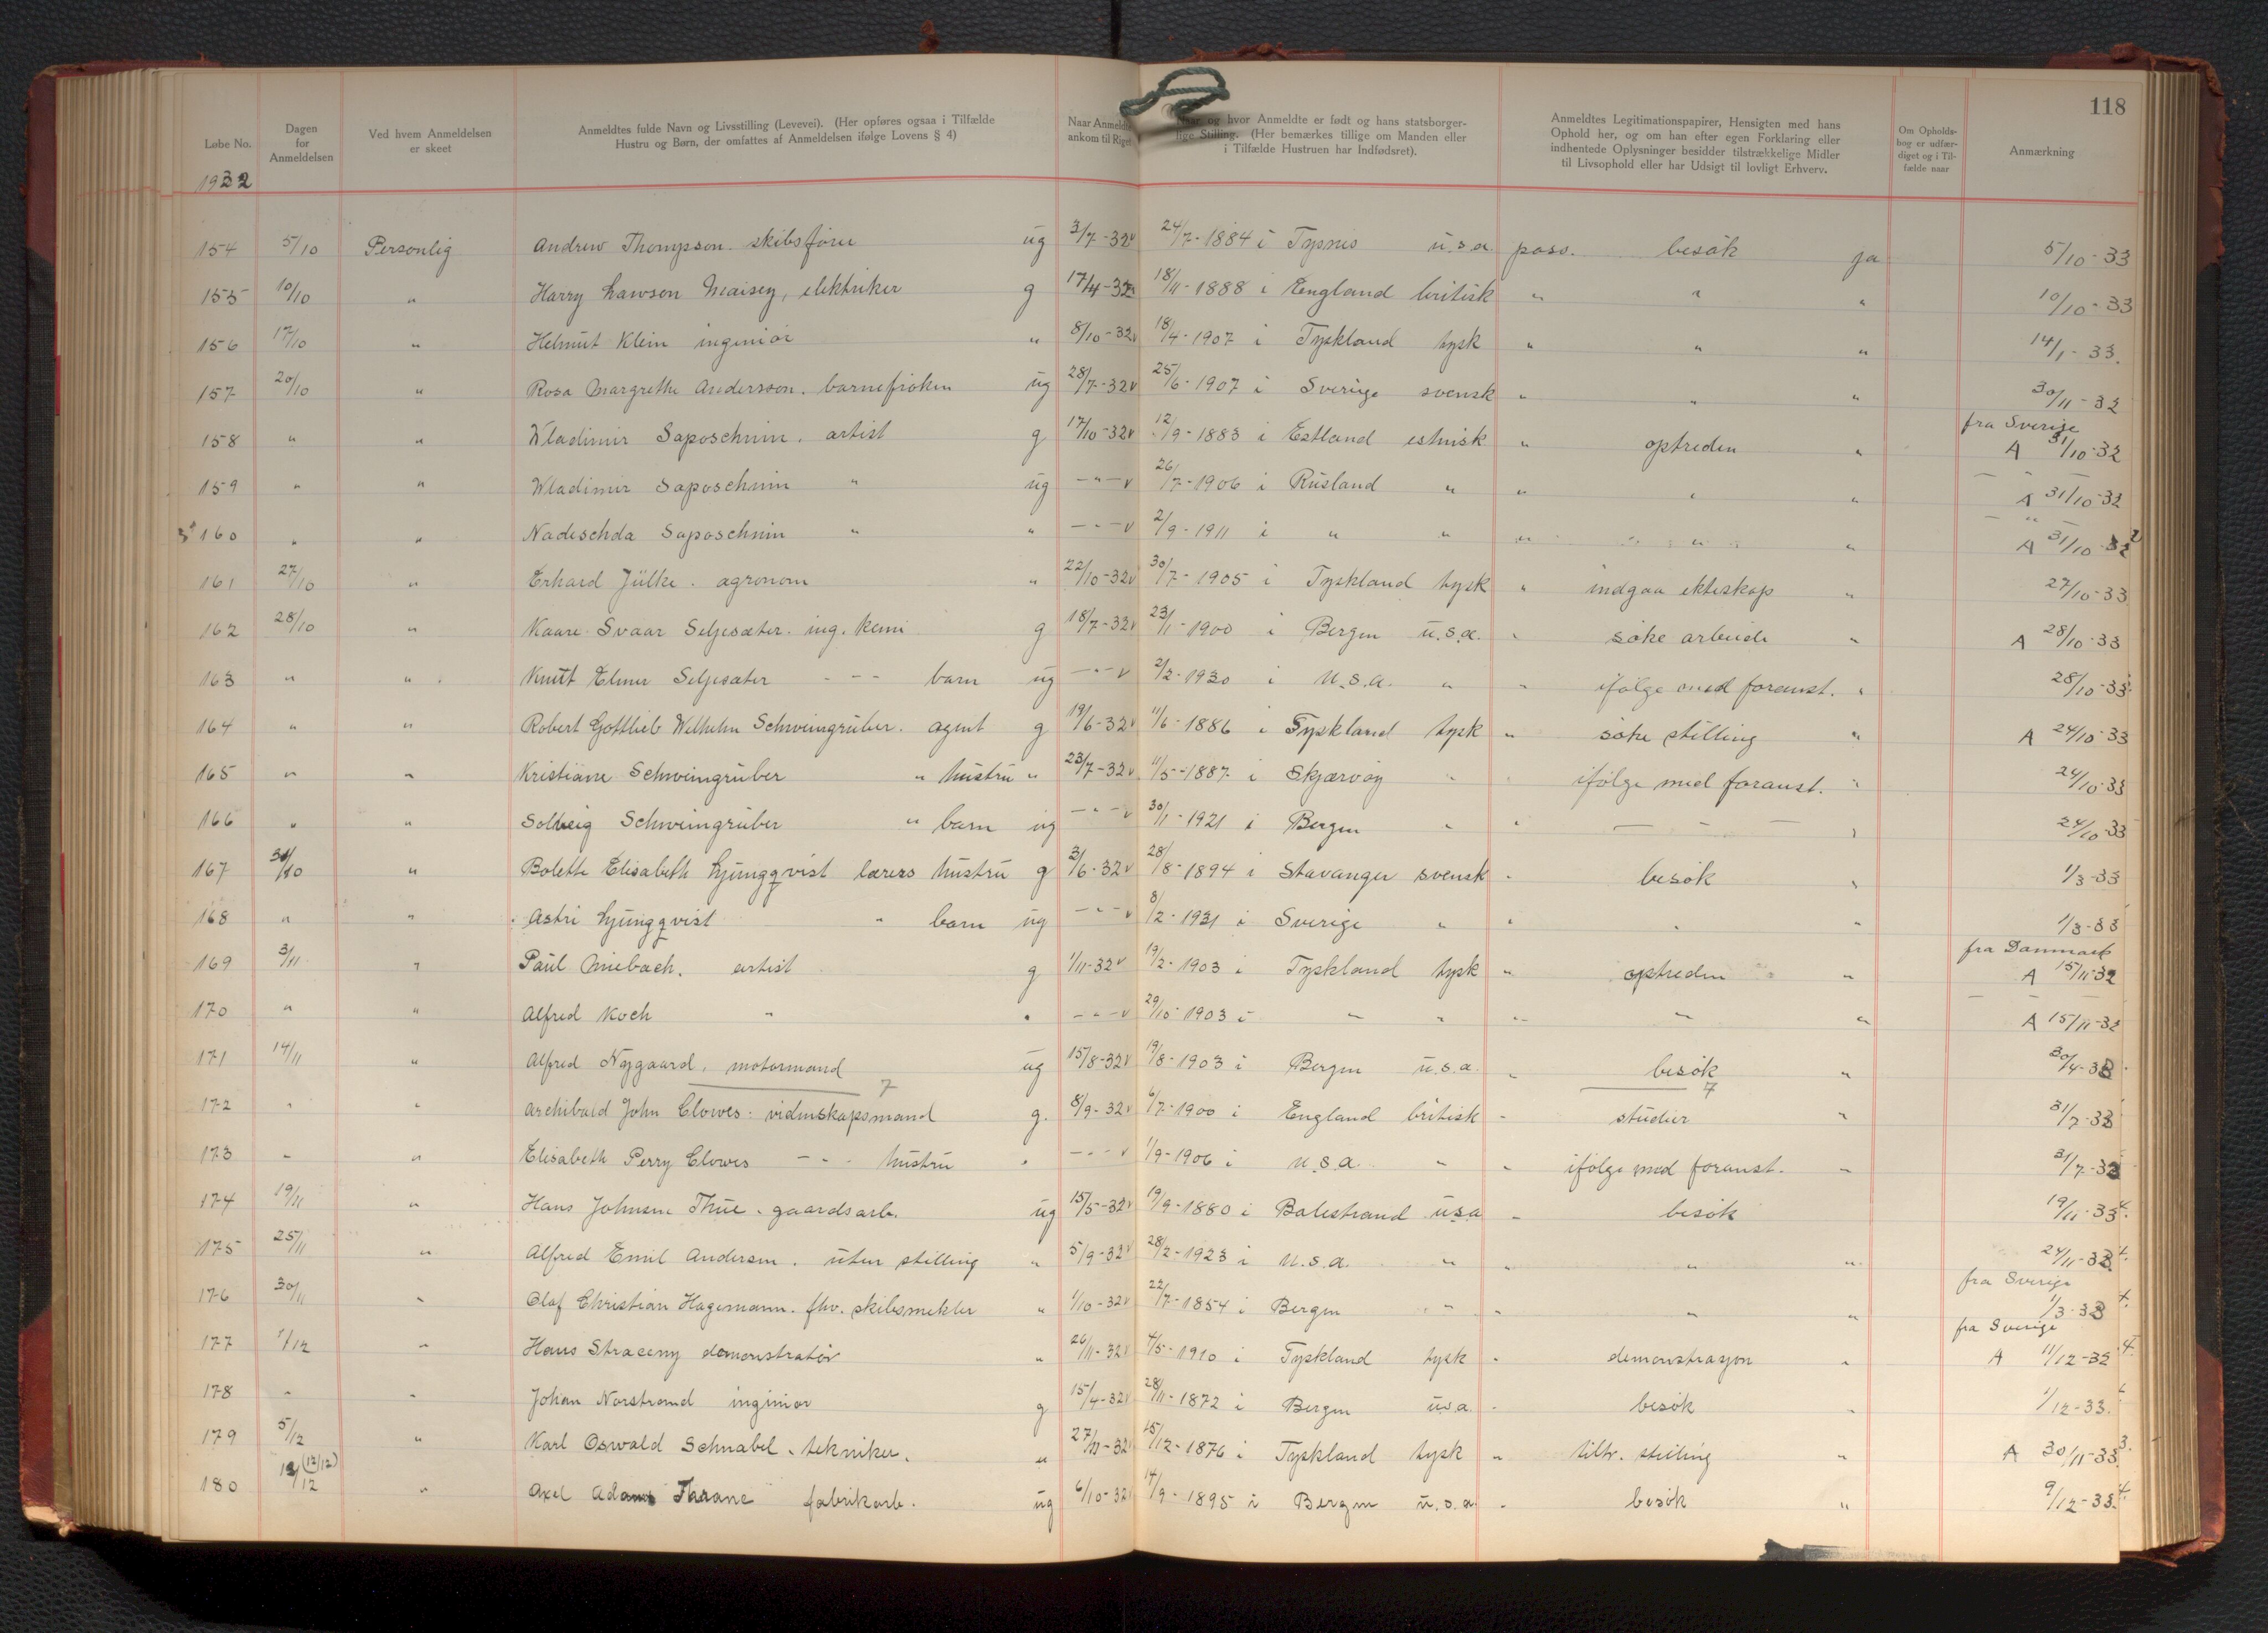 118
Løbe No.
Dagen for Anmeldelsen
Ved hvem Anmeldelsen er skeet
Anmeldtes fulde Navn og Livsstilling (Levevei). (Her opføres ogsaa i Tilfælde Hustru og Børn, der omfattes af Anmeldelsen ifølge Lovens § 4)
Naar Anmeldte ankom til Riget
og hvor Anmeldte er født og hans statsborgerlige Stilling. (Her bemærkes tillige om Manden eller i Tilfælde Hustruen har Indfødsret).
Anmeldtes Legitimationspapirer, Hensigten med hans Ophold her, og om han efter egen Forklaring eller indhentede Oplysninger besidder tilstrækkelige Midler til Livsophold eller har Udsigt til lovligt Erhverv.
Om Opholdsbog er udfærdiget og i Tilfælde naar
Anmærkning
1932
154 5/10 Personlig Andrew Thompson. skibsfører ug 3/7-32 v 24/7-1884 i u.s.a pass. besök ja 5/10-33
155 10/10 " Harry Lawson Maisey, elektriker g 17/4-32 18/11-1888 i England britisk " " " 10/10-33
156 17/10 " Helmut Klein ingeniør " 8/10-32 v 18/4-1907 i Tyskland tysk " " " 14/1-33.
157 20/10 " Rosa Margrethe Andersson. barnefrøken ug 28/7-32 v 25/6-1907 i Sverige svensk " " " 30/11-32
158 " " Wladimir Saposchnin. artist g 17/10-32 v 12/9-1883 i Estland estnisk " optreden " fra Sverige A 31/10-32
159 " " Wladimir Saposchnin " ug -"- v 26/7-1906 i Rusland " " " " - " - A 31/10-32
160 " " Nadeschda Saposchnin " " -"- v 2/9-1911 i " " " " " - " - A 31/10-32
161 27/10 " Erhard Jülke. agronom " 22/10-32 v 30/7-1905 i Tyskland tysk " indgaa ekteskap " 27/10-33
162 28/10 " Kaare Svaar Seljesæter. ing. kemi g 18/7-32 v 23/1-1900 i Bergen u.s.a. " söke arbeide " A 28/10-33
163 " " Knut Elmer Seljesæter - " - barn ug -"- v 2/2-1930 i U.S.a. " " ifölge med foranst. " 28/10-33
164 " " Robert Gottlieb Wilhelm Schweingruber. agent g 19/6-32 v 11/6-1886 i Tyskland tysk " söke stilling " A 24/10-33
165 " " Kristiane Schweingruber " hustru " 23/7-32 v 11/5-1887 i Skjærvöy " " ifölge med foranst. " 24/10-33
166 " " Solveig Schweingruber " barn ug -"- v 30/1-1921 i Bergen " " - " - " 24/10-33
167 31/10 " Bolette Elisabeth Ljungqvist lærers hustru g 3/6-32 v 28/8-1894 i Stavanger svensk " besök " 1/3-33
168 " " Astri Ljungqvist " barn ug -"- v 8/2-1931 i Sverige " " " " 1/3-33
169 3/11 " Paul Miebach. artist g 1/11-32 v 19/2-1903 i Tyskland tysk " optreden " fra Danmark A 15/11-32
170 " " Alfred Koch " " -"- v 29/10-1903 i " " " " " - - - A 15/11-32
171 14/11 " Alfred Nygaard, motormand ug 15/8-32 v 19/8-1903 i Bergen u.s.a. " besök " 30/4-33
172 " " Archibald John Clowes. videnskapsmand g. 8/9-32 v 6/7-1900 i England britisk " studier " 31/7-33
173 " " Elisabeth Perry Clowes - " - hustru " -"- v 1/9-1906 i U.S.a. " " ifölge med foranst. " 31/7-33
174 19/11 " Hans Johnsen Thue. gaardsarb. ug 15/5-32 v 19/9-1880 i Balestrand u.s.a " besök 19/11-33
175 25/11 " Alfred Emil Andersen. uten stilling " 5/9-32 v 28/2-1923 i U.S.a. " " " " 24/11-33
176 30/11 " Olaf Christian Hagemann. fhv. skibsmekler " 1/10-32 v 22/7-1854 i Bergen " " " " fra Sverige 1/3-33
177 1/12 " Hans Straceny demonstratör " 26/11-32 4/5-1910 i Tyskland tysk " demonstrasjon " fra Sverige A 11/12-32
178 " " Johan Norstrand ingeniør g 15/4-32 v 28/11-1872 i Bergen u.s.a. " besök " 1/12-33.
179 5/12 " Karl Oswald Schnabel. tekniker. " 27/11-32 15/12-1876 i Tyskland tysk " tiltr. stilling " A 30/11-33
180 12/12 (12/12) " Axel Adam Thrane fabrikarb. ug 6/10-32 14/9-1895 i Bergen u.s.a. " besök " 9/12-33.